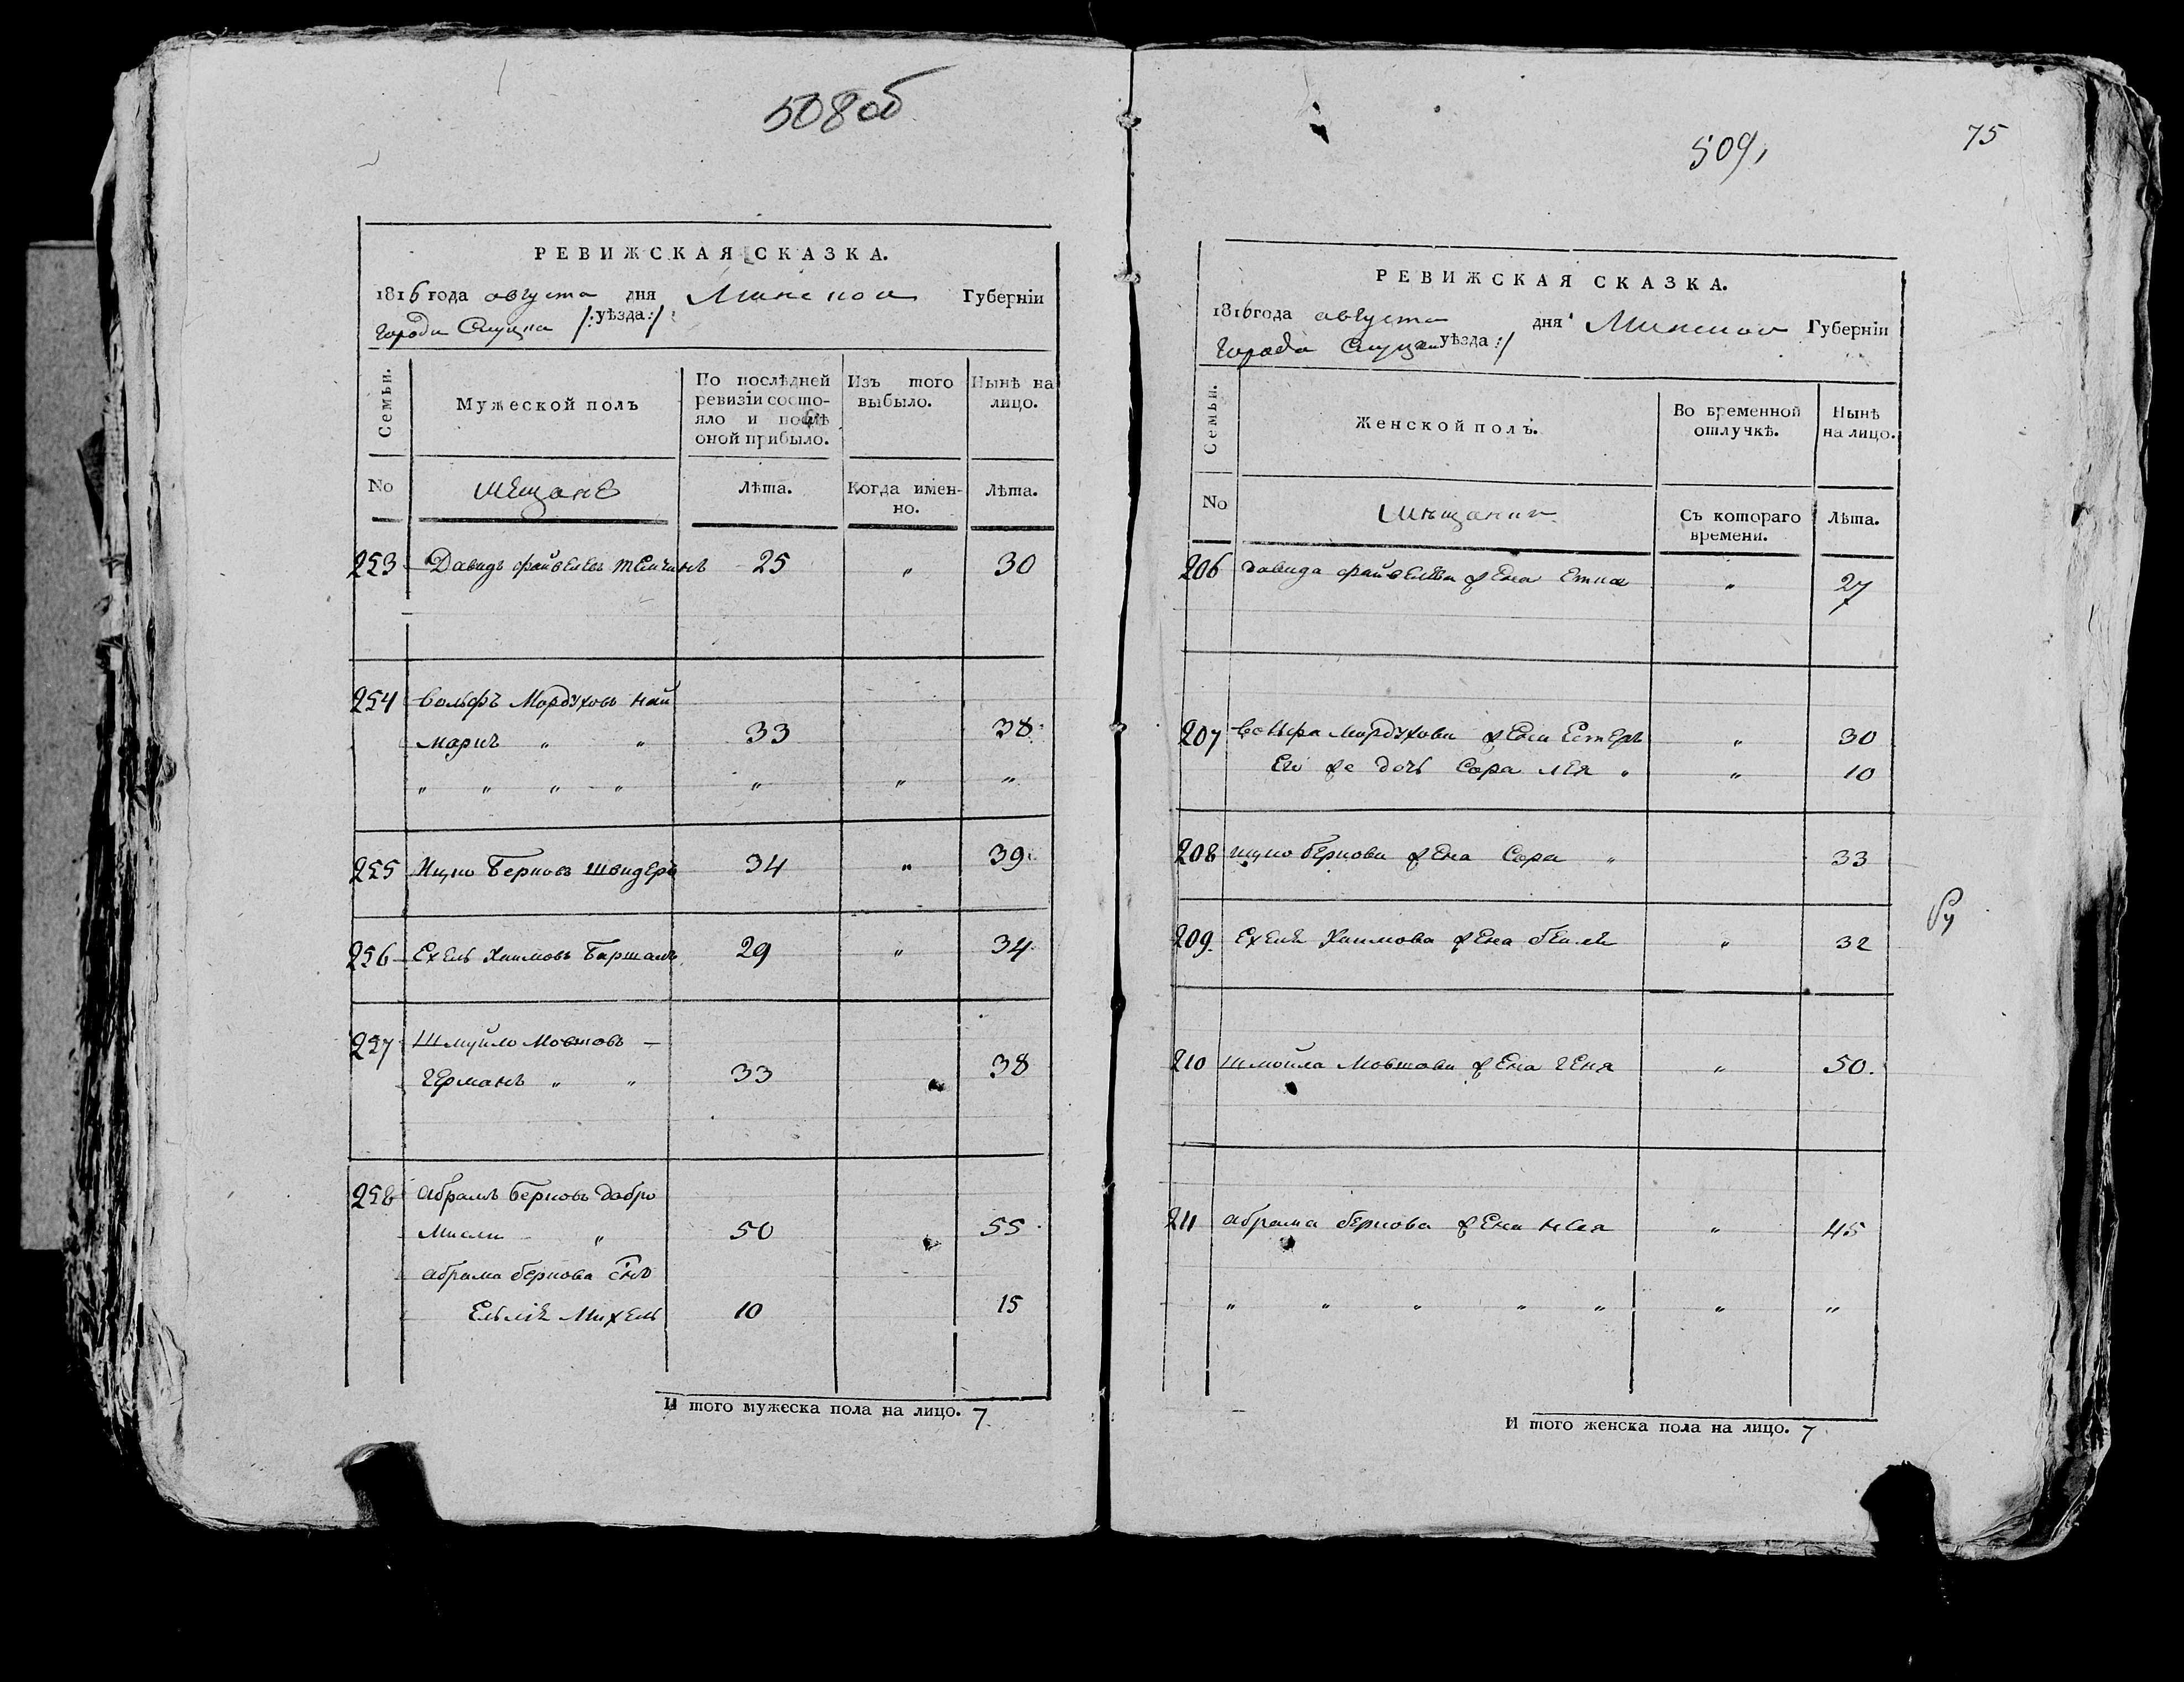 508об
РЕВИЖСКАЯ СКАЗКА.
1816 года августа дня Минской Губерніи
города Слуцка /:уѣзда:/
Семьи.
Мужеской полъ
По послѣдней ревизіи состо-
яло и послѣ оной прибыло.
Изъ того выбыло.
Нынѣ на лицо.
No
мещане
Лѣта.
Когда имен-
но.
Лѣта.
253 Давидъ Файвелевъ 25 " 30
254 Вольфъ Мордуховъ Най
маркъ " " 33 38
" " " " " " "
255 Ицко Берковъ Швидеръ 34 " 39
256 Ехель Хаимовъ 29 " 34
257 Шмуйло Мовшовъ —
Германъ " " 33 " 38
258 Абрамъ Берковъ Добро
Мысли " 50 " 55
Абрама Беркова снъ
Михель 10 15
И того мужеска пола на лицо. 7
509
75
РЕВИЖСКАЯ СКАЗКА.
1816 года августа дня Минской Губерніи
города Слуцка уѣзда:/
Семьи.
Женской полъ.
Во временной
отлучкѣ.
Нынѣ
на лицо.
No
мѣщанки
Съ котораго
времени.
Лѣта.
206 Давида Файвелева жена Етка " 27
207 Вольфа Мордухова жена Естеръ " 30
Его же дочь Сора Лея " " 10
208 Ицко Беркова жена Сора " 33
209. Ехеля Хаимова жена Бейля " 32
210 Шмойла Мовшова жена Геня " 50.
211 Абрама Беркова жена " 45
" " " " " " "
И того женска пола на лицо. 7